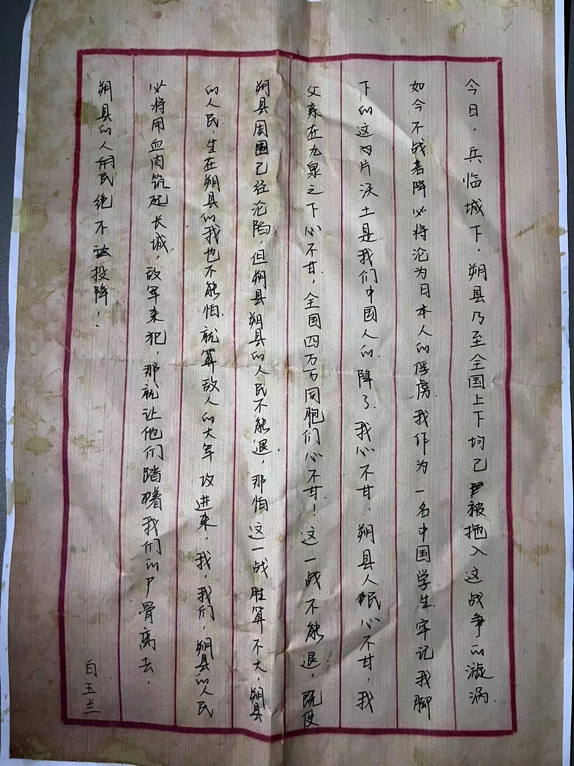 今日，兵临城下，朔县乃至全国上下均已被拖入这战争的漩涡
如今不战若降必将沦为日本人的俘虏.我作为一名中国学生.牢记我脚
下的这片沃土是我们中国人的.降了.我心不甘.朔县人民心不甘，我
父亲在九泉之下心不甘，全国四万万同胞们心不甘！这一战不能退，既使
朔县周围已经沦陷，但朔县朔县的人民不能退，那怕这一战胜算不大，朔县
的人民，生在朔县的我也不能怕.就算敌人的大军攻进来，我，我们，朔县的人民
必将用血肉筑起长城，敌军来犯，那就让他们踏着我们的尸骨离去，
朔县的人民绝不投降！
白玉兰